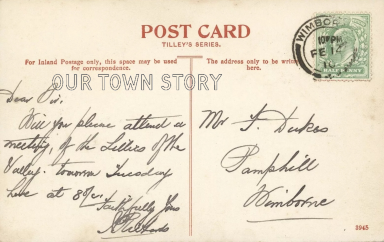 POST CARD
TILLEY'S SERIES.
For Inland Postage only, this space may be used
for correspondence.
The address only to be written
here.
WIMBOR
FE 12
HALFPENNY
OUR TOWN STORY
Dear Sir.
Will you please attend a
meeting, of the of the
Valley. Tuesday
here at
Faithfully Yours
Mr F. Dukes
Pamphill
Wimborne
3945